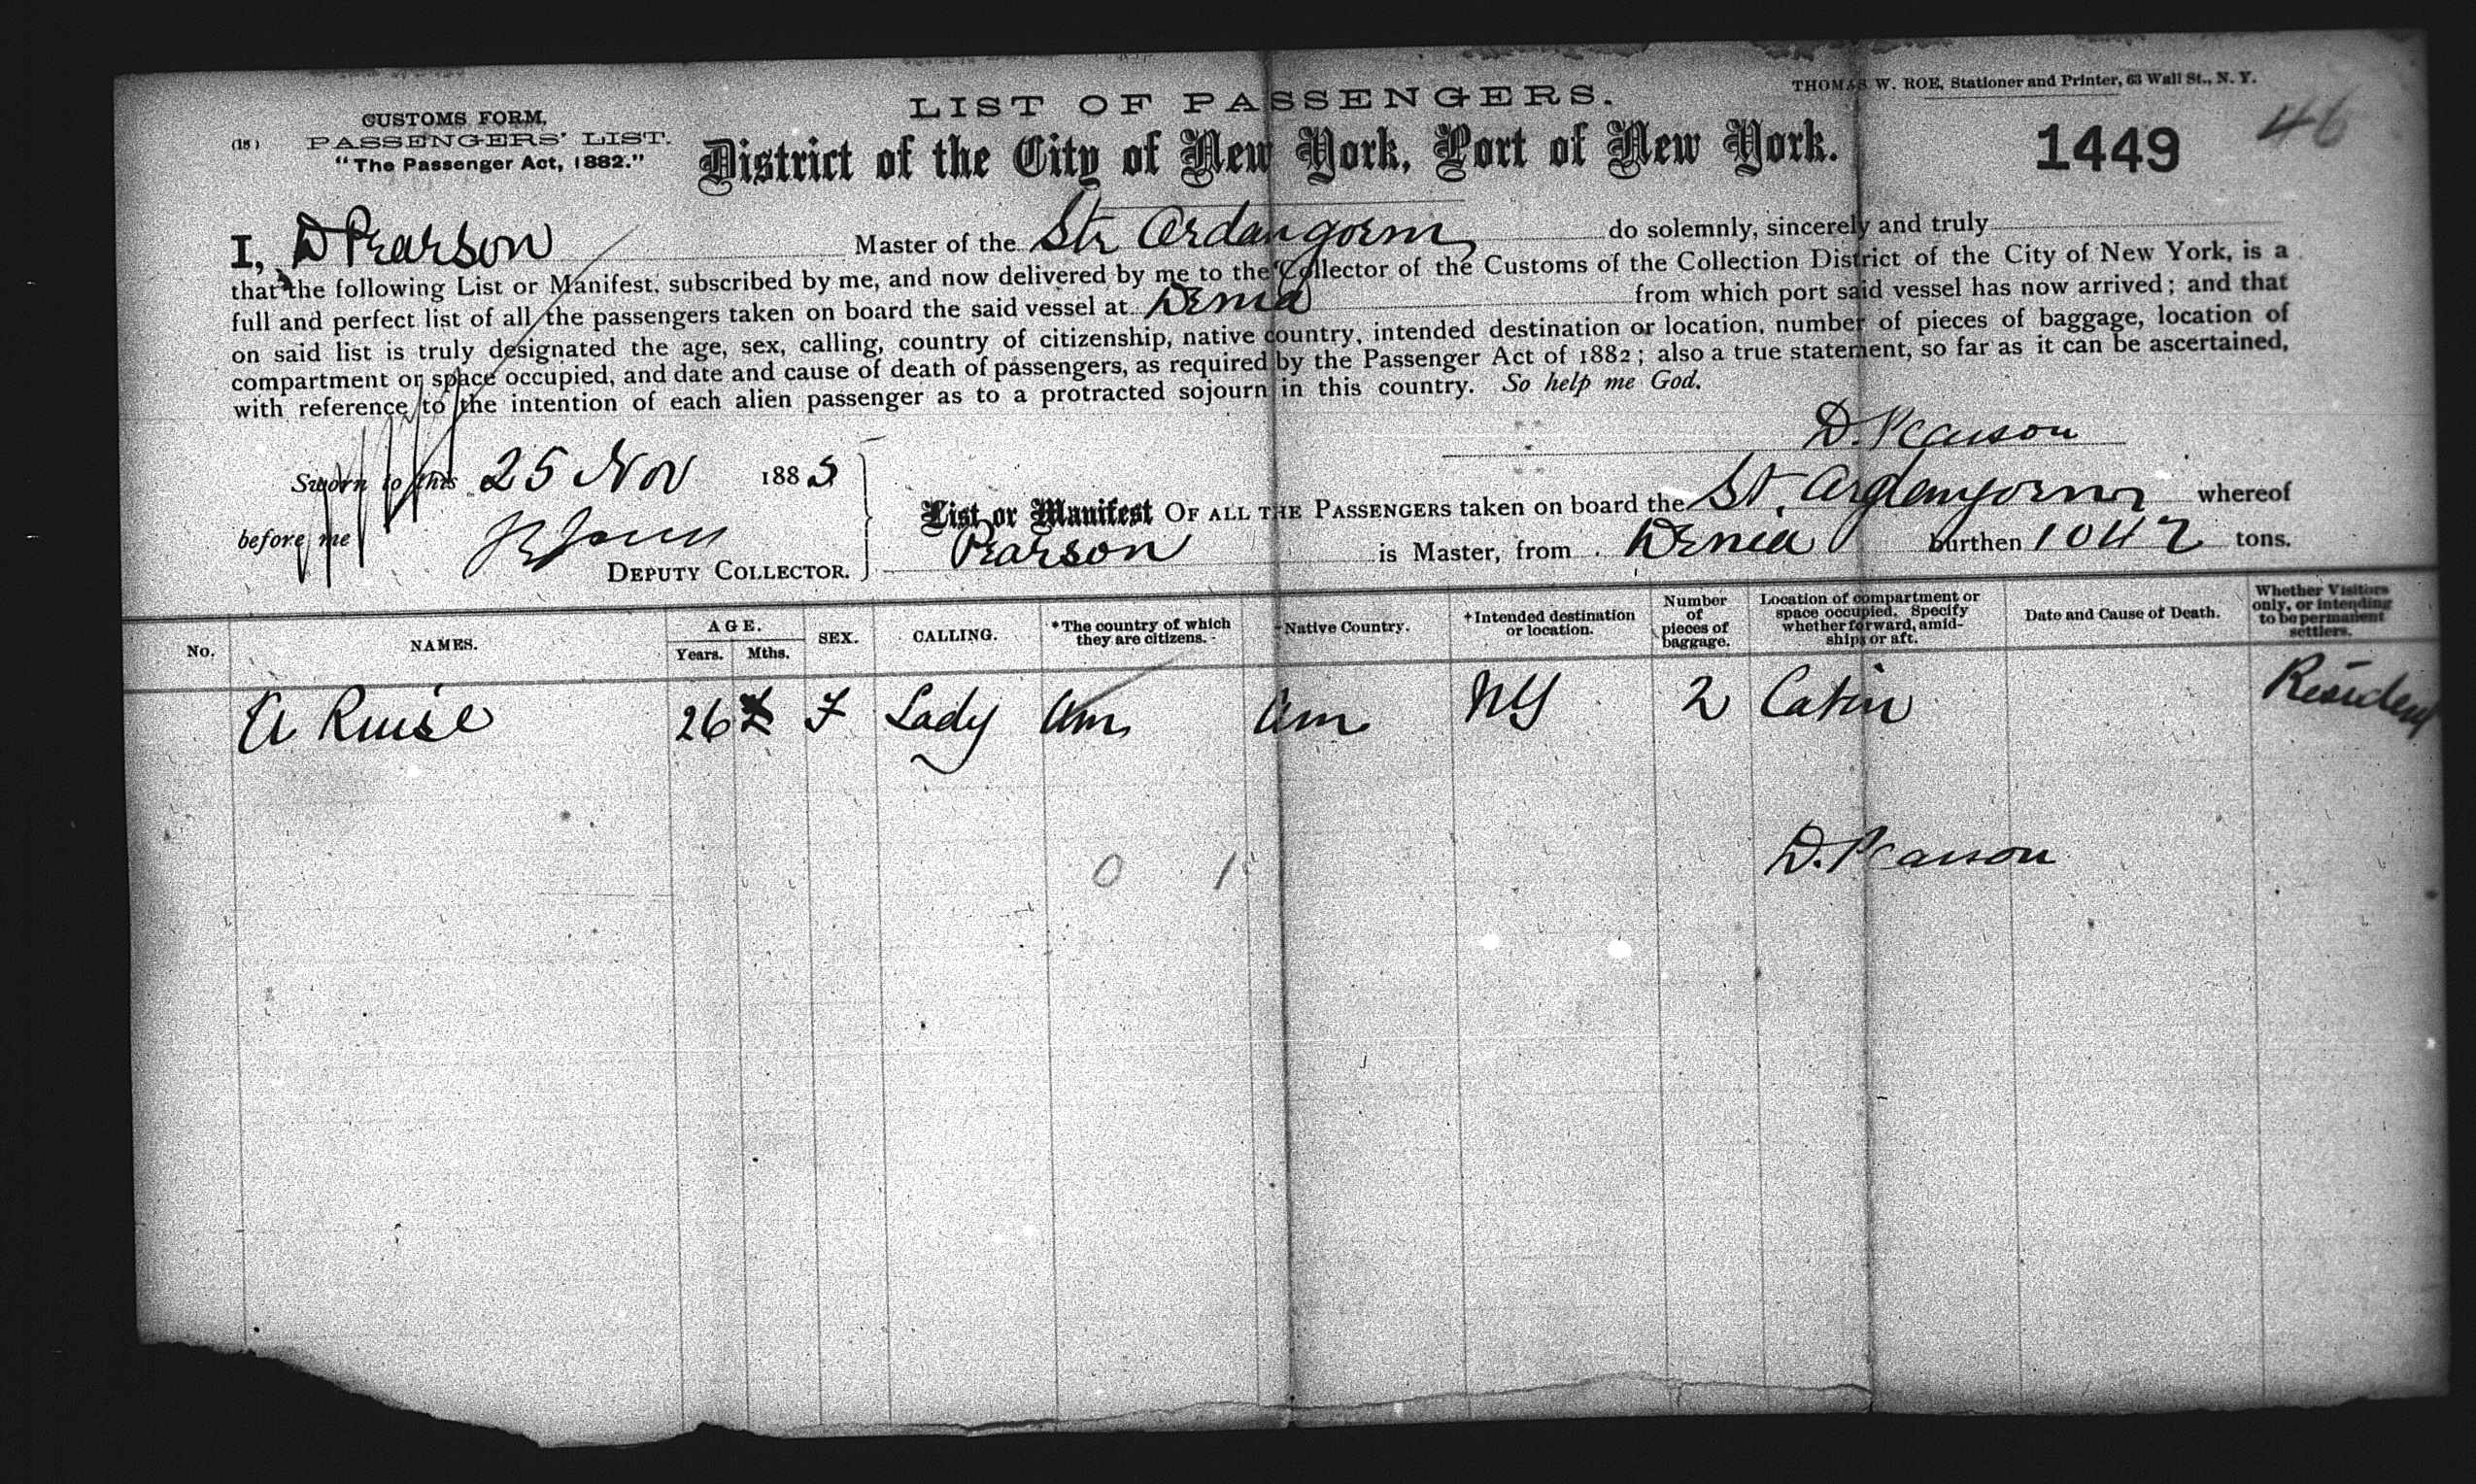 LIST OF PASSENGERS.
THOMAS W. ROE, Stationer and Printer, 63 Wall St., N. Y.
CUSTOMS FORM,
(18) PASSENGERS' LIST.
"The Passenger Act, 1882."
District of the City of New York, Port of New York.
1449
46
I, D Pearson Master of the Str Ardangorm do solemnly, sincerely and truly
that the following List or Manifest, subscribed by me, and now delivered by me to the Collector of the Customs of the Collection District of the City of New York, is a
full and perfect list of all the passengers taken on board the said vessel at Denia from which port said vessel has now arrived; and that
on said list is truly designated the age, sex, calling, country of citizenship, native country, intended destination or location, number of pieces of baggage, location of
compartment or space occupied, and date and cause of death of passengers, as required by the Passenger Act of 1882; also a true statement, so far as it can be ascertained,
with reference to the intention of each alien passenger as to a protracted sojourn in this country. So help me God.
D. Pearson
Sworn to this 25 Nov 1885
before me
DEPUTY COLLECTOR.
List or Manifest OF ALL THE PASSENGERS taken on board the St. Ardangorm whereof
Pearson is Master, from Denia burthen 1047 tons.
No. NAMES. AGE. Years. Mths. SEX. CALLING. *The country of which they are citizens. +Native Country. +Intended destination or location. Number of pieces of baggage. Location of compartment or space occupied. Specify whether forward, amidships or aft. Date and Cause of Death. Whether Visitors only, or intending to be permanent settlers.
A 26 F Lady Am Am NY 2 Cabin Resident
D. Pearson
0 1